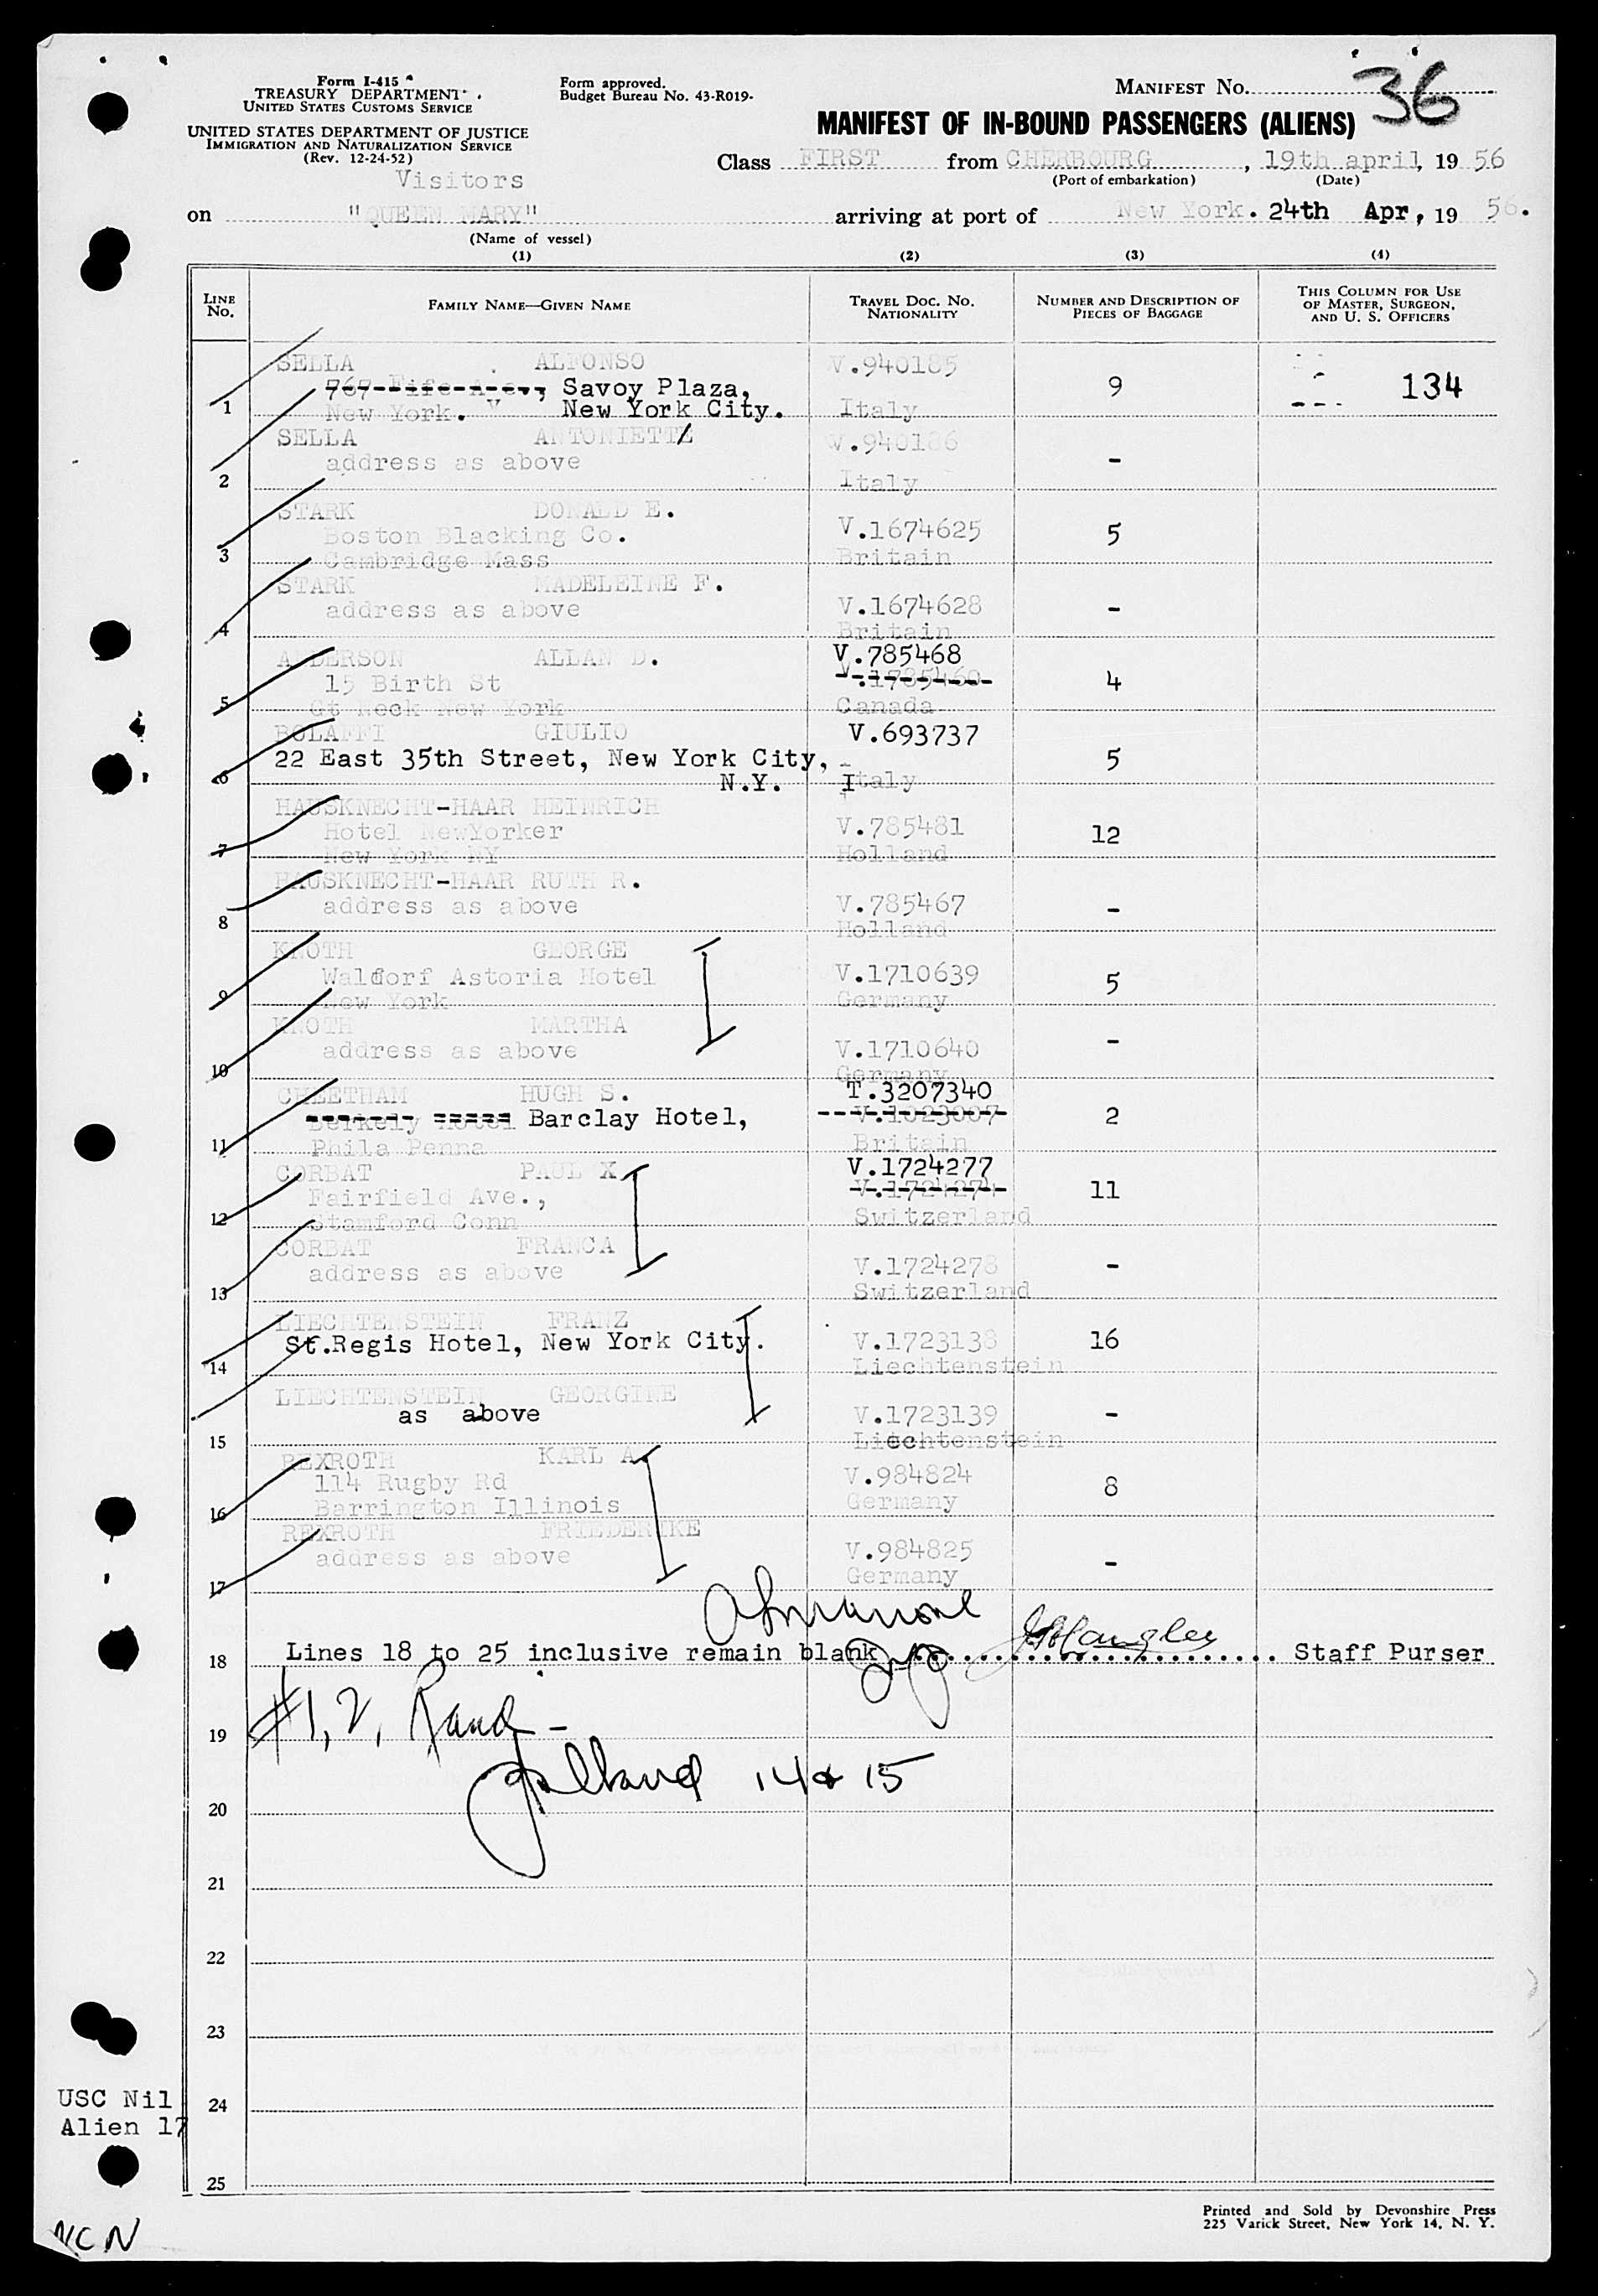 Form I-415
TREASURY DEPARTMENT
UNITED STATES CUSTOMS SERVICE
UNITED STATES DEPARTMENT OF JUSTICE
IMMIGRATION AND NATURALIZATION SERVICE
(Rev. 12-24-52)
Visitors
Form approved.
Budget Bureau No. 43-R019-
MANIFEST No. 36
MANIFEST OF IN-BOUND PASSENGERS (ALIENS)
Class FIRST from CHERBOURG, 19th april, 19 56
(Port of embarkation) (Date)
on "QUEEN MARY" arriving at port of New York. 24th Apr, 19 56.
(Name of vessel)
(1) (2) (3) (4)
LINE No. FAMILY NAME—GIVEN NAME TRAVEL DOC. No. NATIONALITY NUMBER AND DESCRIPTION OF PIECES OF BAGGAGE THIS COLUMN FOR USE OF MASTER, SURGEON, AND U. S. OFFICERS
SELLA ALFONSO V.940185
767 Fife Ave., Savoy Plaza, 9 134
1 New York. New York City. Italy
SELLA ANTONIETT V.940186
address as above -
2 Italy
STARK DONALD E.
Boston Blacking Co. V.1674625 5
3 Cambridge Mass Britain
STARK MADELEINE F.
address as above V.1674628 -
4 Britain
ANDERSON ALLAN D. V.785468
15 Birth St V.1785460 4
5 Gt Neck New York Canada
BOLAFFI GIULIO V.693737
22 East 35th Street, New York City, 5
6 N.Y. Italy
HAUSKNECHT-HAAR HEINRICH
Hotel NewYorker V.785481 12
7 New York NY Holland
HAUSKNECHT-HAAR RUTH R.
address as above V.785467 -
8 Holland
KNOTH GEORGE
Waldorf Astoria Hotel V.1710639 5
9 New York Germany
KNOTH MARTHA
address as above V.1710640 -
10 Germany
CHEETHAM HUGH S. T.3207340
Berkely Hotel Barclay Hotel, V.1023007 2
11 Phila Penna Britain
CORBAT PAUL X V.1724277
Fairfield Ave., V.1724274 11
12 Stamford Conn Switzerland
CORBAT FRANCA
address as above V.1724278 -
13 Switzerland
LIECHTENSTEIN FRANZ
St.Regis Hotel, New York City. V.1723138 16
14 Liechtenstein
LIECHTENSTEIN GEORGINE
as above V.1723139 -
15 Liechtenstein
REXROTH KARL A.
114 Rugby Rd V.984824 8
16 Barrington Illinois Germany
REXROTH FRIEDERIKE
address as above V.984825 -
17 Germany
18 Lines 18 to 25 inclusive remain blank Staff Purser
19 #1, 2,
14 & 15
20
21
22
23
USC Nil
24
Alien 17
25
Printed and Sold by Devonshire Press
225 Varick Street, New York 14, N. Y.
NCN